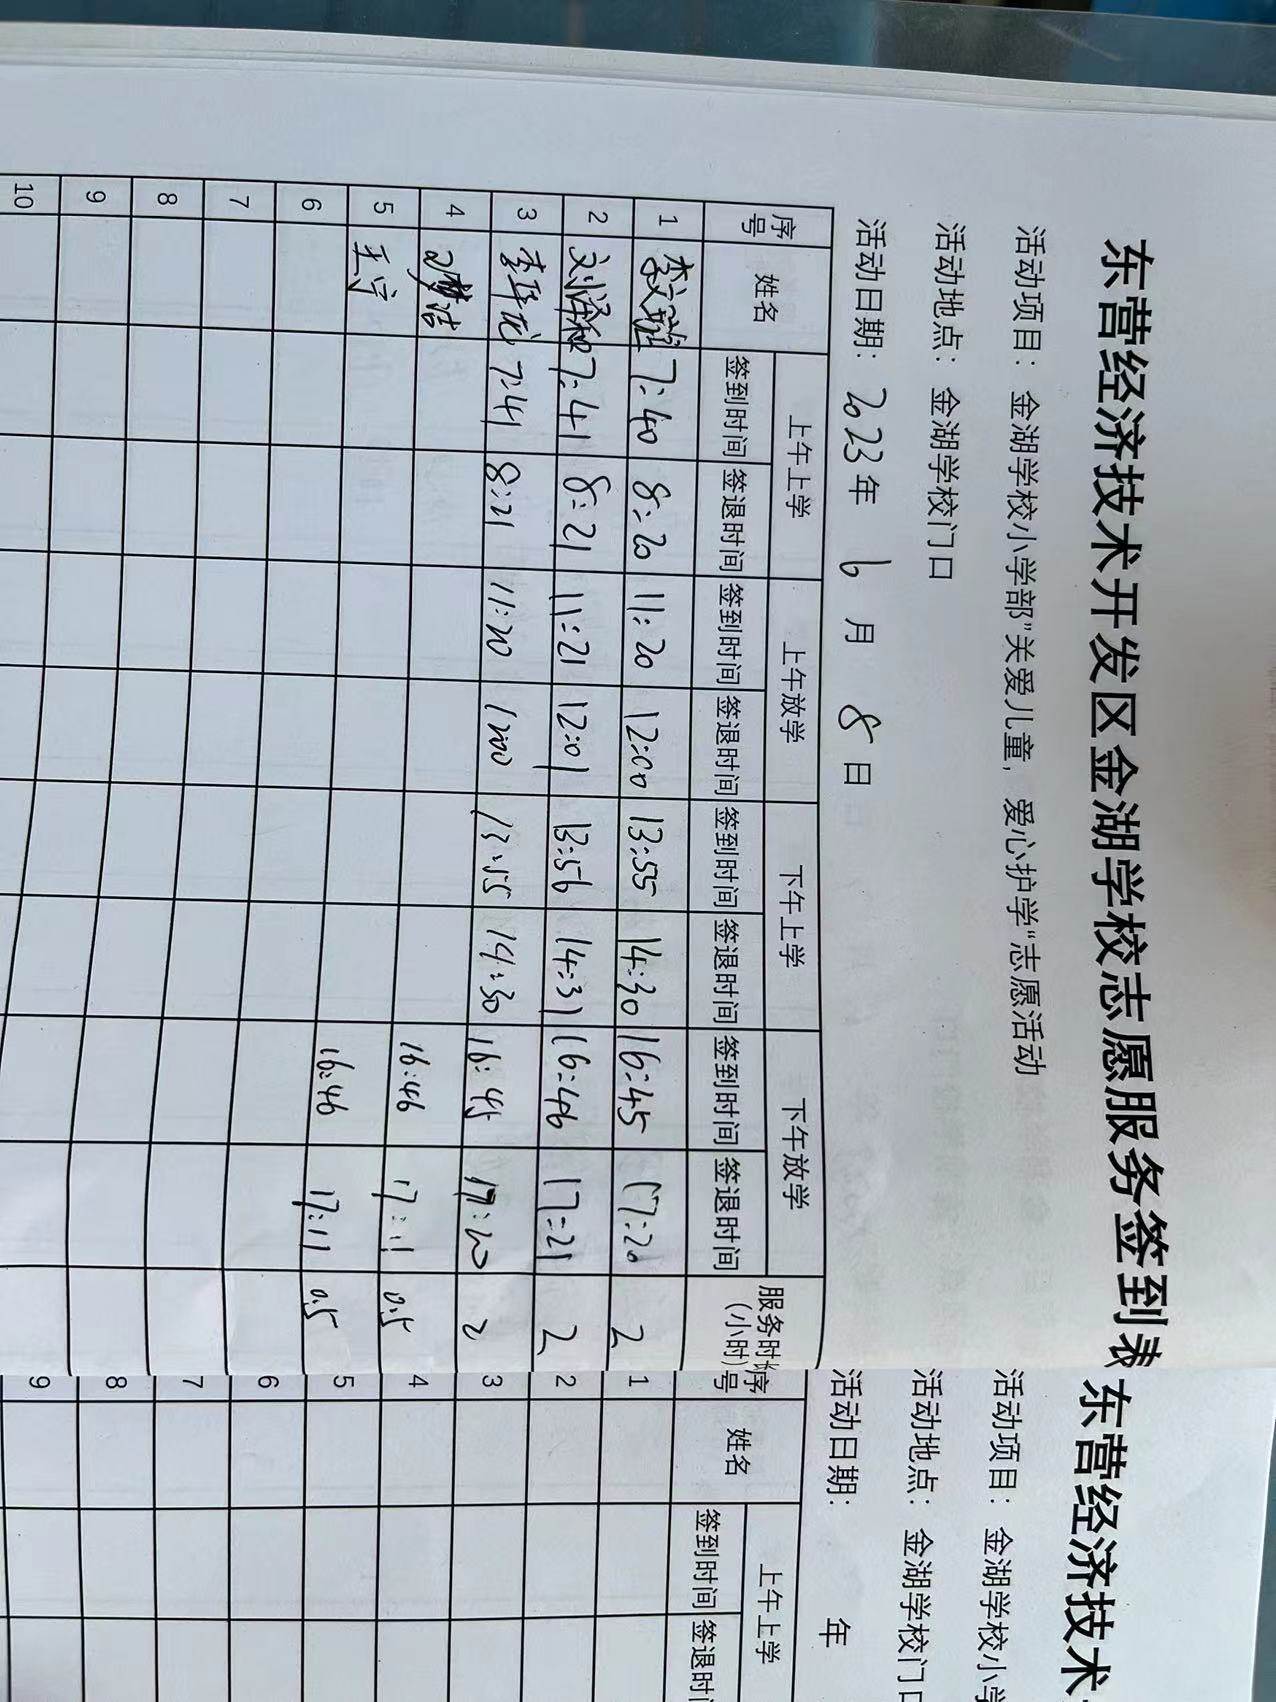 东营经济技术开发区金湖学校志愿服务签到表
活动项目： 金湖学校小学部"关爱儿童，爱心护学"志愿活动
活动地点： 金湖学校门口
活动日期： 2023年 6 月 8 日
序号 姓名 上午上学 上午放学 下午上学 下午放学 服务时长(小时)
签到时间 签退时间 签到时间 签退时间 签到时间 签退时间 签到时间 签退时间
1 7:40 8:20 11:20 12:00 13:55 14:30 16:45 17:20 2
2 7:41 8:21 11:21 12:01 13:56 14:31 16:46 17:21 2
3 李华龙 7:41 8:21 11:20 12:00 13:55 14:30 16:45 17:20 2
4 16:46 17:11 0.5
5 王宁 16:46 17:11 0.5
6
7
8
9
10
东营经济技术
活动项目： 金湖学校小学
活动地点： 金湖学校门口
活动日期： 年
序号 姓名 上午上学
签到时间 签退时间
1
2
3
4
5
6
7
8
9